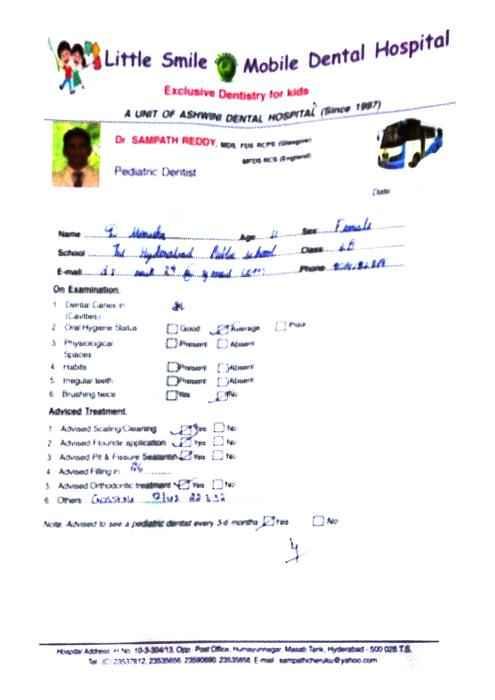 Little Smile Mobile Dental Hospital
Exclusive Dentistry for kids
A UNIT OF ASHWINI DENTAL HOSPITAL (Since 1997)
Dr. SAMPATH REDDY, MDS, FDS RCPS (Glasgow)
MFDS RCS (England)
Pediatric Dentist
Date
Name Age 11 Sex Female
School The Hyderabad Public School Class 6B
E-mail Phone
On Examination.
1 Dental Caries in
(Cavities)
2 Oral Hygiene Status Good Average Poor
3 Physiological Present Absent
Spaces
4 Habits Present Absent
5 Irregular teeth Present Absent
6 Brushing twice Yes No
Adviced Treatment.
1 Advised Scaling/Cleaning Yes No
2 Advised Flouride application Yes No
3 Advised Pit & Fissure Sealants Yes No
4 Advised Filling in
5 Advised Orthodontic treatment Yes No
6 Others
Note. Advised to see a pediatric dentist every 3-6 months Yes No
Hospital Address: H No. 10-3-304/13, Opp. Post Office, Humayunnagar, Masab Tank, Hyderabad - 500 028 T.S.
Tel. (C) 23537812, 23535656, 23590690, 23535858 E-mail : sampathcheruku@yahoo.com